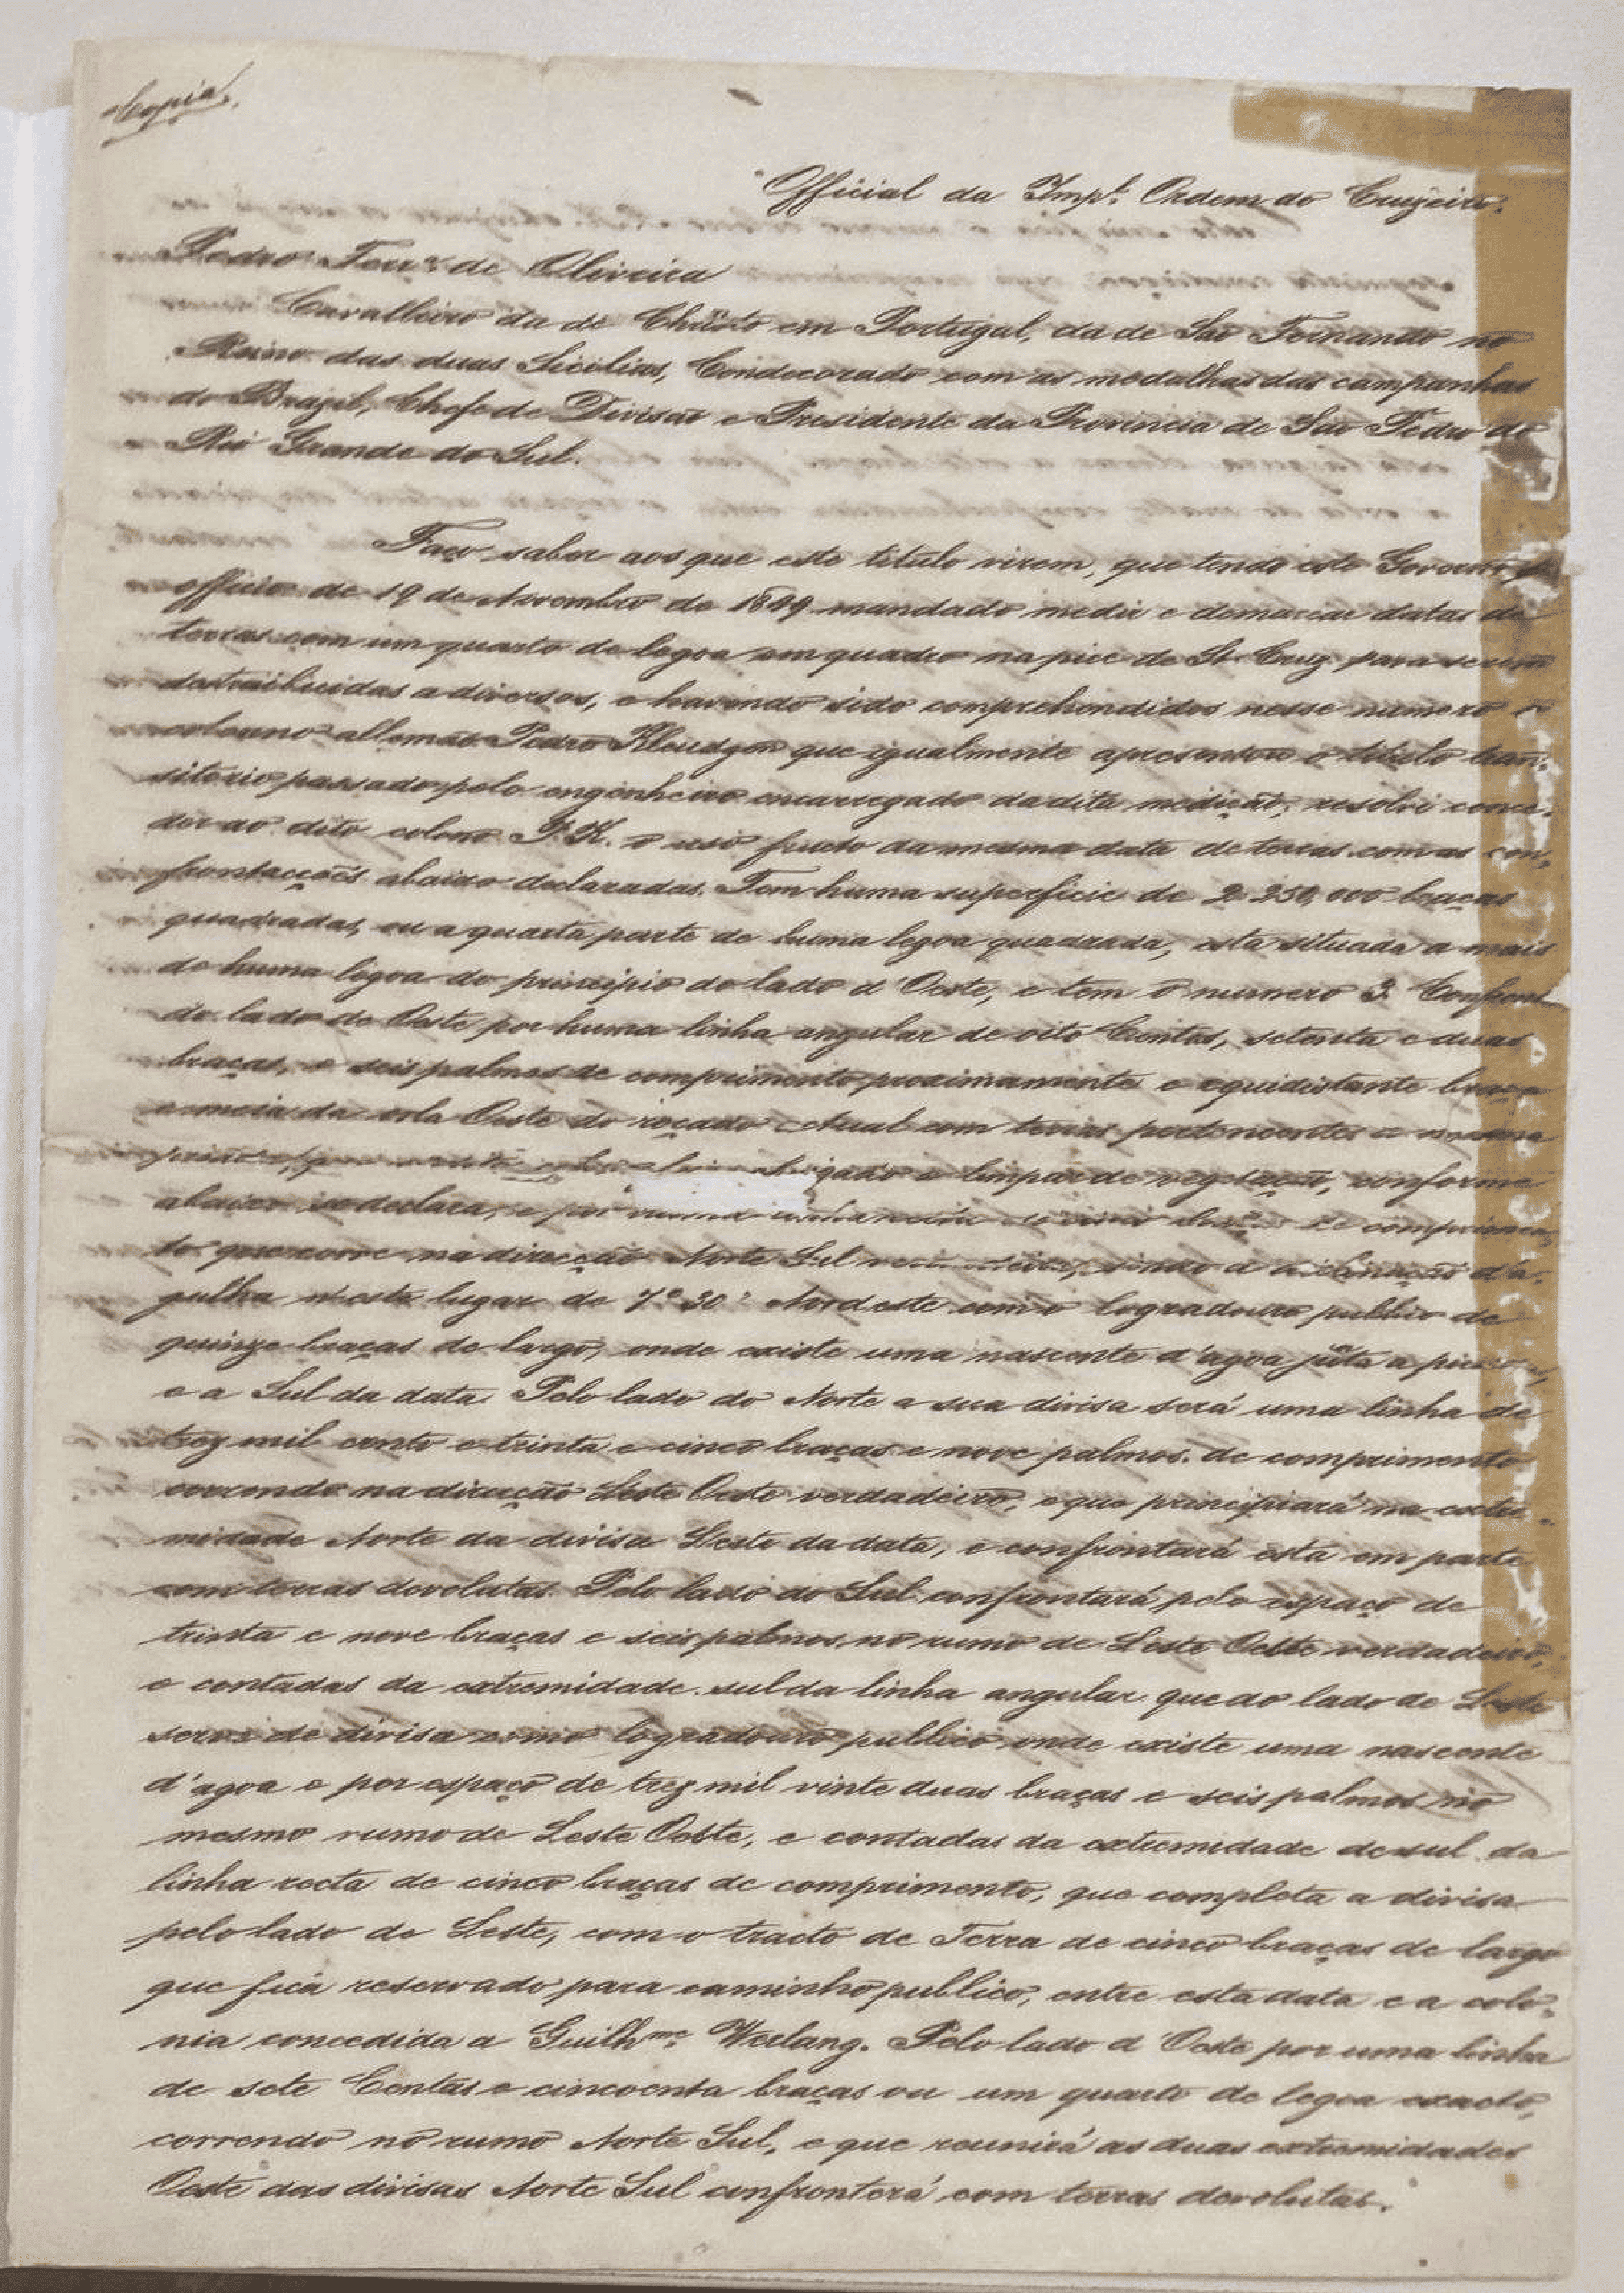 Copia.
Official da Imp.l Ordem do Cruzeiro.
Pedro Ferr.a de Oliveira
Cavalleiro da de Christo em Portugal, da de São Fernando no
Reino das duas Sicilias, Condecorado com as medalhas das campanhas
do Brazil, Chefe de Divisão e Presidente da Provincia de São Pedro do
Rio Grande do Sul.
Faço saber aos que este titulo virem, que tendo este Governo
officio de 19 de Novembro de 1849 mandado medir e demarcar datas de
terras com um quarto de legoa em quadro na pice de St. Cruz para serem
destribuidas a diversos, e havendo sido comprehendidos nesse numero o
colonno allemão Pedro Kleudgen que igualmente apresentou o titulo tran-
sitorio passado pelo engenheiro encarregado da dita medição, resolvi conce-
der ao dito colono P. K. o uso fructo da mesma data de terras com as con-
frontacções abaixo declaradas. Tem huma superficie de 2 250,000 braças
quadradas, ou a quarta parte de huma legoa quadrada, esta situada a mais
de huma legoa do principio do lado d'Oeste, e tem o numero 3. Confront
do lado de Oeste por huma linha angular de oito Centos, setenta e duas
braças, e seis palmos de comprimento proximamente e equidistante braça
e meia da orla Oeste do roçado Actual com terras pertencentes a mesma
obrigado a limpar de vegetação, conforme
abaixo se declara, e por de comprimen-
to que corre na direcção Norte Sul a inclinação d'a-
gulha n'este lugar de 7° 30' Nordeste com o logradouro publico de
quinze braças de largo, onde existe uma nascente d'agoa jũta a
e a Sul da data. Pelo lado do Norte a sua divisa será uma linha de
trez mil cento e trinta e cinco braças e nove palmos de comprimento
correndo na direcção Leste Oeste verdadeiro, e que principiará na extre-
midade Norte da divisa Leste da data, e confrontará esta em parte
com terras devolutas. Pelo lado do Sul confrontará pelo espaço de
trinta e nove braças e seis palmos, no rumo de Leste Oeste verdadeiro,
e contadas da extremidade sul da linha angular que do lado de Leste
serve de divisa como logradouro publico onde existe uma nascente
d'agoa e por espaço de trez mil vinte duas braças e seis palmos no
mesmo rumo de Leste Oeste, e contadas da extremidade de sul da
linha recta de cinco braças de comprimento, que completa a divisa
pelo lado de Leste, com o tracto de Terra de cinco braças de largo
que fica reservado para caminho publico, entre esta data e a colo-
nia concedida a Guilh.me Werlang. Pelo lado d'Oeste por uma linha
de sete Centas e cincoenta braças ou um quarto de legoa exacto,
correndo no rumo Norte Sul, e que reunirá as duas extremidades
Oeste das divisas Norte Sul confronterá com terras devolutas.